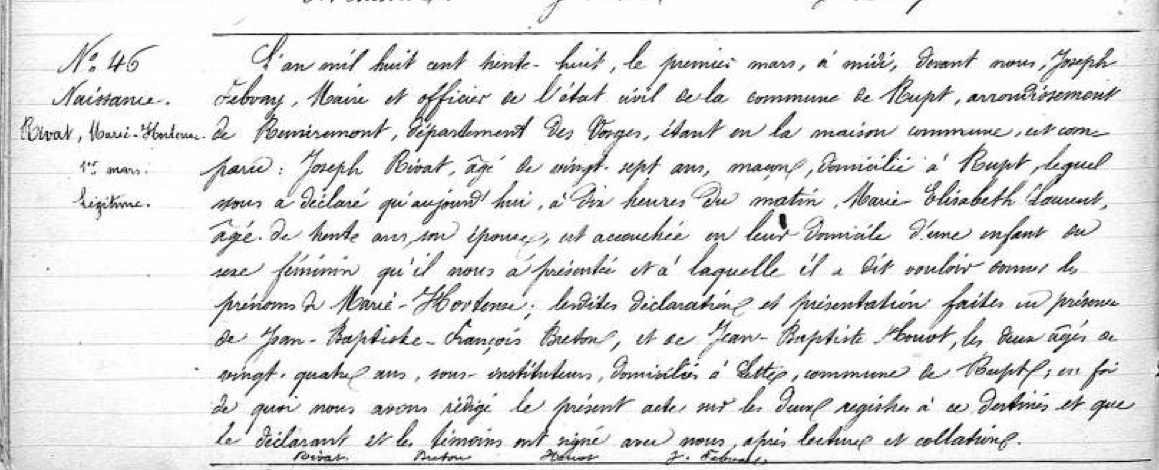 No. 46
Naissance.
Rivat, Marie-Hortense.
1er mars.
Légitime.
L'an mil huit cent trente-huit, le premier mars, à midi, devant nous, Joseph
Febvay, Maire et officier de l'état civil de la commune de Rupt, arrondissement
de Remiremont, département des Vosges, étant en la maison commune, est com-
paru : Joseph Rivat, âgé de vingt-sept ans, maçon, domicilié à Rupt, lequel
nous a déclaré qu'aujourd'hui, à dix heures du matin, Marie-Elisabeth Laurent,
âgé de trente ans, son épouse, est accouchée en leur domicile d'une enfant du
sexe féminin qu'il nous a présentée et à laquelle il a dit vouloir donner les
prénoms de Marie-Hortense ; lesdites déclaration et présentation faites en présence
de Jean-Baptiste-François Breton, et de Jean-Baptiste Houot, les deux âgés de
vingt-quatre ans, sous-instituteurs, domiciliés à , commune de Rupt ; en foi
de quoi nous avons rédigé le présent acte sur les deux registres à ce destinés et que
le déclarant et les témoins ont signé avec nous, après lecture et collation.
Rivat. Breton Houot J. Febvay.